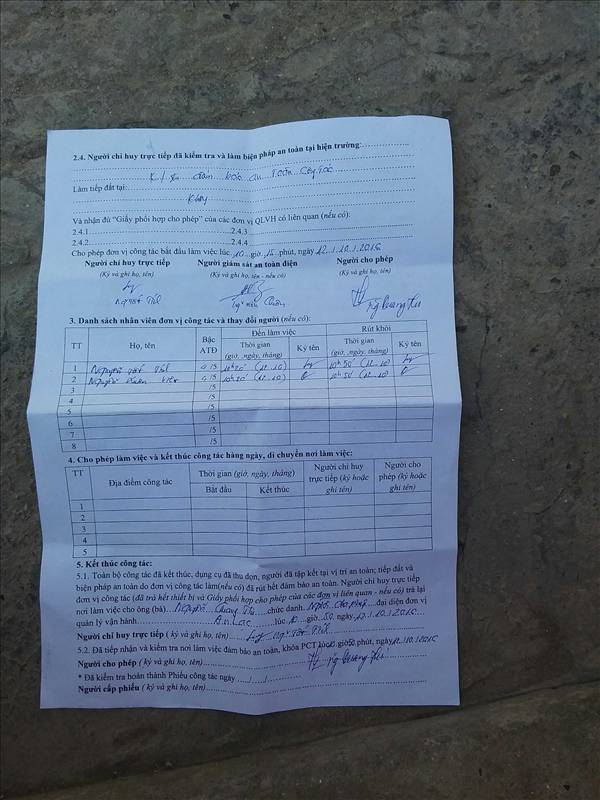 2.4. Người chỉ huy trực tiếp đã kiểm tra và làm biện pháp an toàn tại hiện trường:
đảm bảo an toàn công tác
Làm tiếp đất tại:
Không
Và nhận đủ "Giấy phối hợp cho phép" của các đơn vị QLVH có liên quan (nếu có):
2.4.1 2.4.3
2.4.2 2.4.4
Cho phép đơn vị công tác bắt đầu làm việc lúc 10 giờ 15 phút, ngày 12/10/2015
Người chỉ huy trực tiếp Người giám sát an toàn điện Người cho phép
(Ký và ghi họ, tên) (Ký và ghi họ, tên - nếu có) (Ký và ghi họ, tên)
3. Danh sách nhân viên đơn vị công tác và thay đổi người (nếu có):
TT Họ, tên Bậc ATĐ Đến làm việc Rút khỏi
Thời gian (giờ, ngày, tháng) Ký tên Thời gian (giờ, ngày, tháng) Ký tên
1 Nguyễn 4/5 10h20 (12.10) 10h50 (12.10)
2 Nguyễn 4/5 10h20 (12.10) 10h50 (12.10)
3 /5
4 /5
5 /5
6 /5
7 /5
8 /5
4. Cho phép làm việc và kết thúc công tác hàng ngày, di chuyển nơi làm việc:
TT Địa điểm công tác Thời gian (giờ, ngày, tháng) Người chỉ huy trực tiếp (ký hoặc ghi tên) Người cho phép (ký hoặc ghi tên)
Bắt đầu Kết thúc
1
2
3
4
5
5. Kết thúc công tác:
5.1. Toàn bộ công tác đã kết thúc, dụng cụ đã thu dọn, người đã tập kết tại vị trí an toàn; tiếp đất và
biện pháp an toàn do đơn vị công tác làm(nếu có) đã rút hết đảm bảo an toàn. Người chỉ huy trực tiếp
đơn vị công tác (đã trả hết thiết bị và Giấy phối hợp cho phép của các đơn vị liên quan - nếu có) trả lại
nơi làm việc cho ông (bà) Nguyễn Quang chức danh Người cho phép đại diện đơn vị
quản lý vận hành An Lạc lúc 10 giờ 50 ngày 12/10/2015
Người chỉ huy trực tiếp ( ký và ghi họ, tên)
5.2. Đã tiếp nhận và kiểm tra nơi làm việc đảm bảo an toàn, khóa PCT lúc giờ 50 phút, ngày 12/10/2015
Người cho phép ( ký và ghi họ, tên)
* Đã kiểm tra hoàn thành Phiếu công tác ngày / /
Người cấp phiếu ( ký và ghi họ, tên)